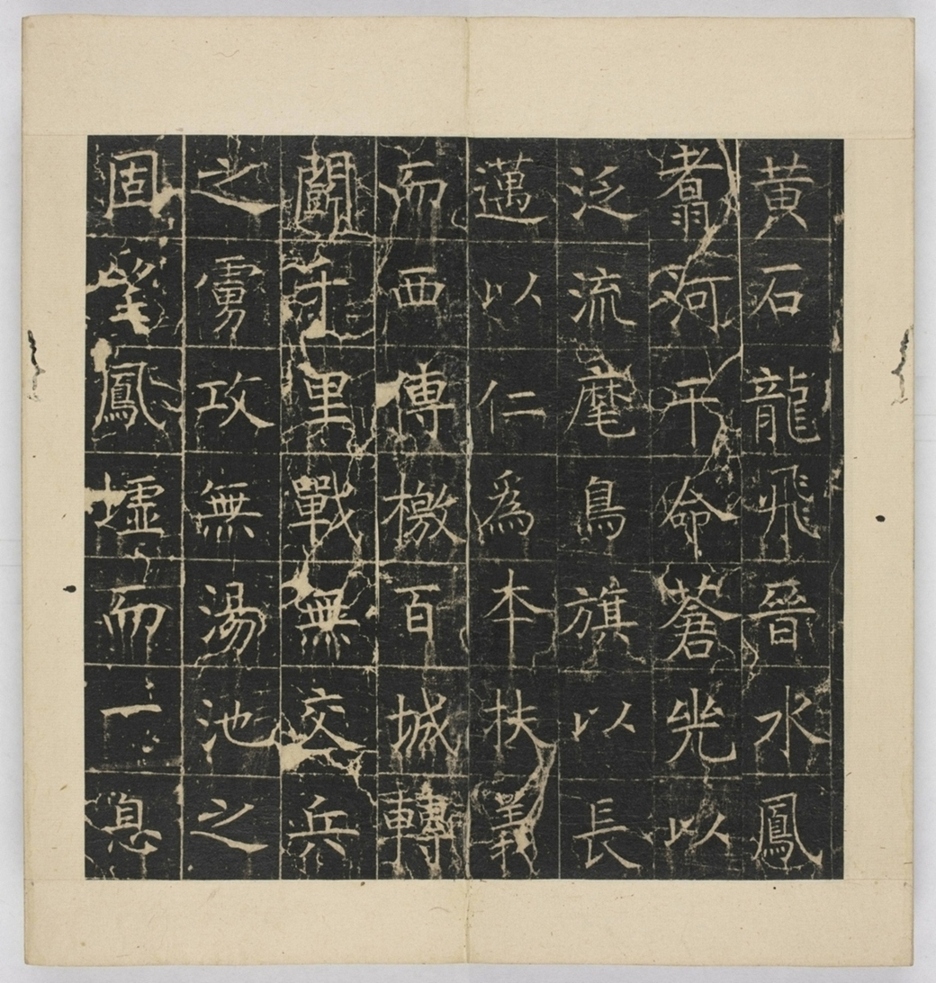 黃石龍飛晉水鳳
翥河干命蒼兕以
泛流麾鳥旗以長
邁以仁為本扶義
而西傳檄百城轉
鬬千里戰無交兵
之虜攻無湯池之
固鳳墟而一息